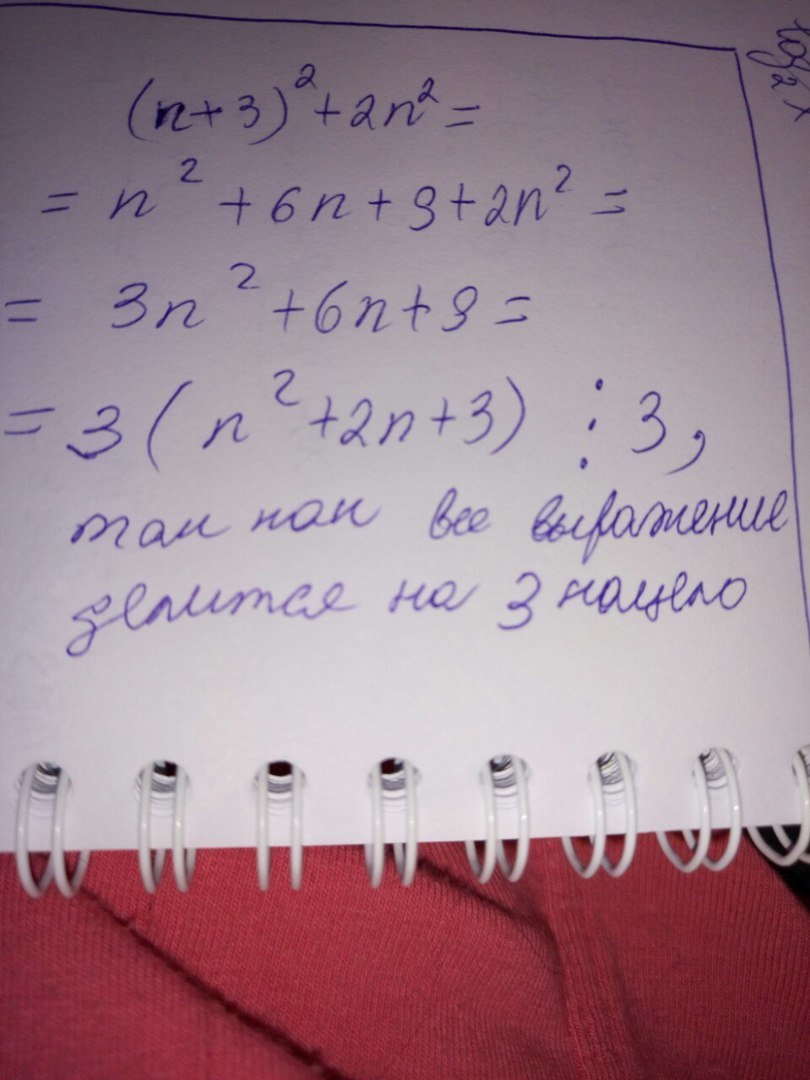 (n+3)²+2n²=
= n² +6n+9+2n² =
= 3n² +6n+9 =
= 3(n²+2n+3) ⋮ 3,
так как все выражение
делится на 3 нацело
log₂ x